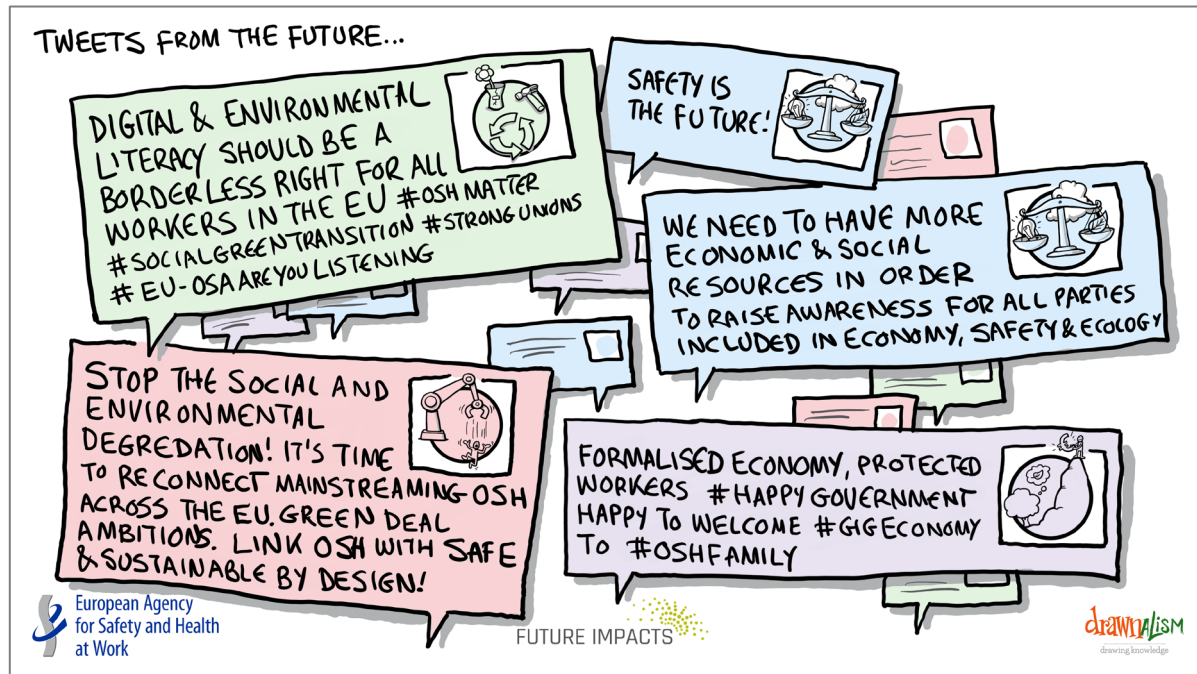 TWEETS FROM THE FUTURE...
DIGITAL & ENVIRONMENTAL
LITERACY SHOULD BE A
BORDERLESS RIGHT FOR ALL
WORKERS IN THE EU #OSHMATTER
#SOCIALGREENTRANSITION #STRONGUNIONS
# EU-OSAAREYOULISTENING
SAFETY IS
THE FUTURE!
WE NEED TO HAVE MORE
ECONOMIC & SOCIAL
RESOURCES IN ORDER
TO RAISE AWARENESS FOR ALL PARTIES
INCLUDED IN ECONOMY, SAFETY & ECOLOGY
STOP THE SOCIAL AND
ENVIRONMENTAL
DEGREDATION! IT'S TIME
TO RECONNECT MAINSTREAMING OSH
ACROSS THE EU. GREEN DEAL
AMBITIONS. LINK OSH WITH SAFE
& SUSTAINABLE BY DESIGN!
FORMALISED ECONOMY, PROTECTED
WORKERS #HAPPYGOVERNMENT
HAPPY TO WELCOME #GIGECONOMY
TO #OSHFAMILY
European Agency
for Safety and Health
at Work
FUTURE IMPACTS
drawnALISM
drawing knowledge